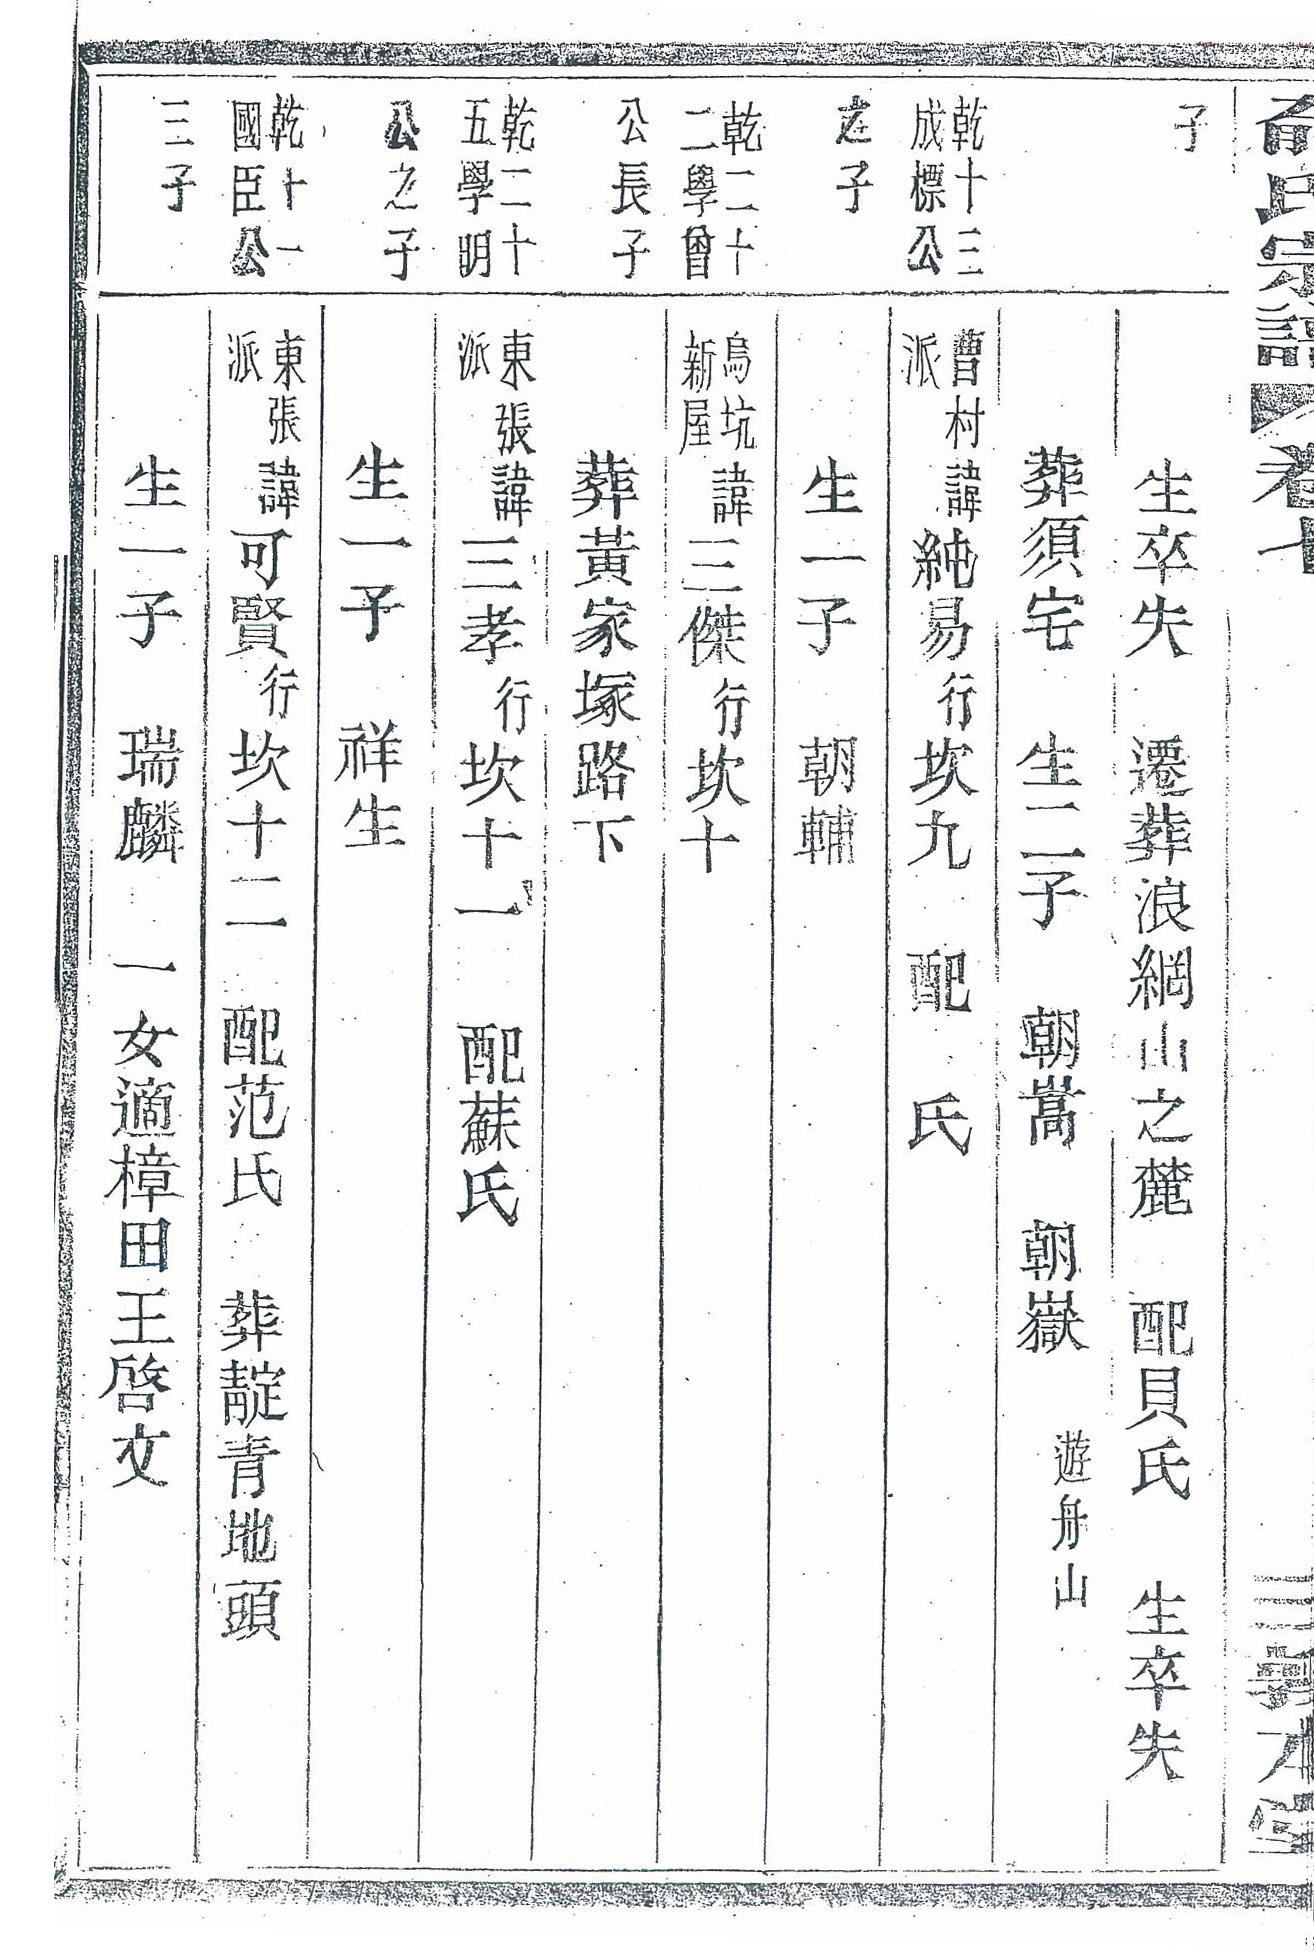 俞氏宗譜 卷七 三 敦本堂
子
生卒失 遷葬浪綱山之麓 配貝氏 生卒失
葬須宅 生二子 朝嵩 朝嶽 遊舟山
乾十三
成標公
曹村
派
諱純易行坎九 配 氏
之子
生一子 朝輔
乾二十
二學曾
烏坑
新屋
諱三傑行坎十
公長子
葬黃家塚路下
乾二十
五學明
東張
派
諱三孝行坎十一 配蘇氏
公之子
生一子 祥生
乾十一
國臣公
東張
派
諱可賢行坎十二 配范氏 葬靛青地頭
三子
生一子 瑞麟 一女適樟田王啓文